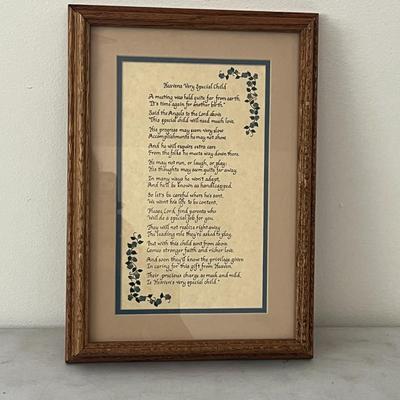 Heavens Very Special Child
A meeting was held quite far from earth,
"It's time again for another birth."
Said the Angels to the Lord above
"This special child will need much love.
His progress may seem very slow
Accomplishments he may not show.
And he will require extra care
From the folks he meets way down there.
He may not run, or laugh, or play;
His thoughts may seem quite far away.
In many ways he won't adapt,
And he'll be known as handicapped.
So let's be careful where he's sent,
We want his life to be content.
Please, Lord, find parents who
Will do a special job for you.
They will not realize right away
The leading role they're asked to play.
But with this child sent from above
Comes stronger faith and richer love.
And soon they'll know the privilege given
In caring for this gift from Heaven.
Their precious charge so meek and mild,
Is Heaven's very special child."